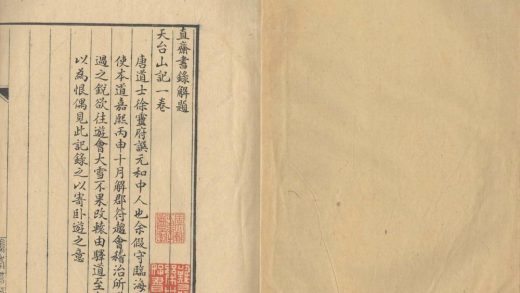 直齋書錄解題
天台山記一卷
唐道士徐靈府譔元和中人也余假守臨海
使本道嘉熙丙申十月解郡符趨會稽治所
過之銳欲往遊會大雪不果改轅由驛道至
以為恨偶見此記錄之以寄臥遊之意